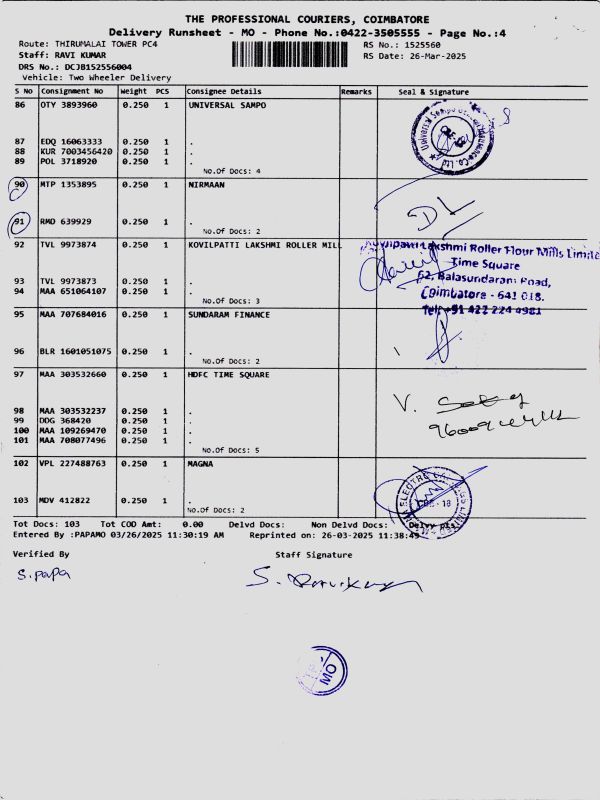 THE PROFESSIONAL COURIERS, COIMBATORE
Delivery Runsheet - MO - Phone No.:0422-3505555 - Page No.:4
Route: THIRUMALAI TOWER PC4 RS No.: 1525560
Staff: RAVI KUMAR RS Date: 26-Mar-2025
DRS No.: DCJB152556004
Vehicle: Two Wheeler Delivery
S No Consignment No Weight PCS Consignee Details Remarks Seal & Signature
86 OTY 3893960 0.250 1 UNIVERSAL SAMPO
87 EDQ 16063333 0.250 1 .
88 KUR 7003456420 0.250 1 .
89 POL 3718920 0.250 1 .
No.Of Docs: 4
90 MTP 1353895 0.250 1 NIRMAAN
91 RMD 639929 0.250 1 .
No.Of Docs: 2
92 TVL 9973874 0.250 1 KOVILPATTI LAKSHMI ROLLER MILL
Kovilpatti Lakshmi Roller Flour Mills Limite
Time Square
62, Balasundaram Road,
Coimbatore - 641 018.
Tel: +91 422 224 4981
93 TVL 9973873 0.250 1 .
94 MAA 651064107 0.250 1 .
No.Of Docs: 3
95 MAA 707684016 0.250 1 SUNDARAM FINANCE
96 BLR 1601051075 0.250 1 .
No.Of Docs: 2
97 MAA 303532660 0.250 1 HDFC TIME SQUARE
98 MAA 303532237 0.250 1 .
99 DDG 368420 0.250 1 .
100 MAA 109269470 0.250 1 .
101 MAA 708077496 0.250 1 .
No.Of Docs: 5
102 VPL 227488763 0.250 1 MAGNA
103 MDV 412822 0.250 1 .
No.Of Docs: 2
Tot Docs: 103 Tot COD Amt: 0.00 Delvd Docs: Non Delvd Docs:
Entered By :PAPAMO 03/26/2025 11:30:19 AM Reprinted on: 26-03-2025 11:38:49
Verified By Staff Signature
S.papa
MO